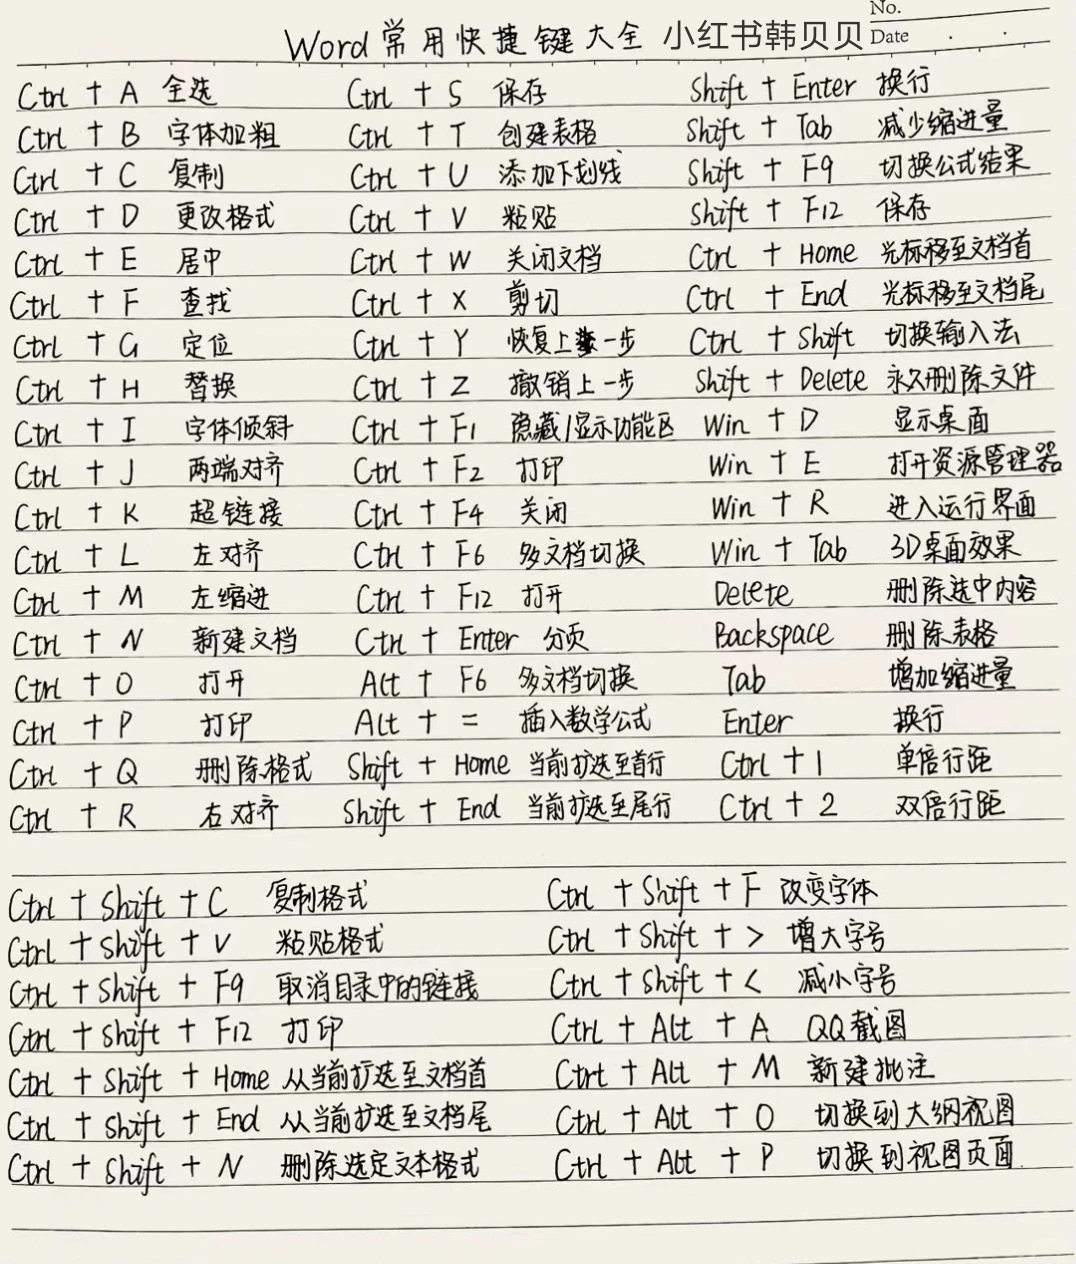 No.
Word 常用快捷键大全 小红书韩贝贝
Date
Ctrl + A 全选 Ctrl + S 保存 Shift + Enter 换行
Ctrl + B 字体加粗 Ctrl + T 创建表格 Shift + Tab 减少缩进量
Ctrl + C 复制 Ctrl + U 添加下划线 Shift + F9 切换公式结果
Ctrl + D 更改格式 Ctrl + V 粘贴 Shift + F12 保存
Ctrl + E 居中 Ctrl + W 关闭文档 Ctrl + Home 光标移至文档首
Ctrl + F 查找 Ctrl + X 剪切 Ctrl + End 光标移至文档尾
Ctrl + G 定位 Ctrl + Y 恢复上一步 Ctrl + Shift 切换输入法
Ctrl + H 替换 Ctrl + Z 撤销上一步 Shift + Delete 永久删除文件
Ctrl + I 字体倾斜 Ctrl + F1 隐藏/显示功能区 Win + D 显示桌面
Ctrl + J 两端对齐 Ctrl + F2 打印 Win + E 打开资源管理器
Ctrl + K 超链接 Ctrl + F4 关闭 Win + R 进入运行界面
Ctrl + L 左对齐 Ctrl + F6 多文档切换 Win + Tab 3D桌面效果
Ctrl + M 左缩进 Ctrl + F12 打开 Delete 删除选中内容
Ctrl + N 新建文档 Ctrl + Enter 分页 Backspace 删除表格
Ctrl + O 打开 Alt + F6 多文档切换 Tab 增加缩进量
Ctrl + P 打印 Alt + = 插入数学公式 Enter 换行
Ctrl + Q 删除格式 Shift + Home 当前扩选至首行 Ctrl + 1 单倍行距
Ctrl + R 右对齐 Shift + End 当前扩选至尾行 Ctrl + 2 双倍行距
Ctrl + Shift + C 复制格式 Ctrl + Shift + F 改变字体
Ctrl + Shift + V 粘贴格式 Ctrl + Shift + > 增大字号
Ctrl + Shift + F9 取消目录中的链接 Ctrl + Shift + < 减小字号
Ctrl + Shift + F12 打印 Ctrl + Alt + A QQ截图
Ctrl + Shift + Home 从当前扩选至文档首 Ctrl + Alt + M 新建批注
Ctrl + Shift + End 从当前扩选至文档尾 Ctrl + Alt + O 切换到大纲视图
Ctrl + Shift + N 删除选定文本格式 Ctrl + Alt + P 切换到视图页面